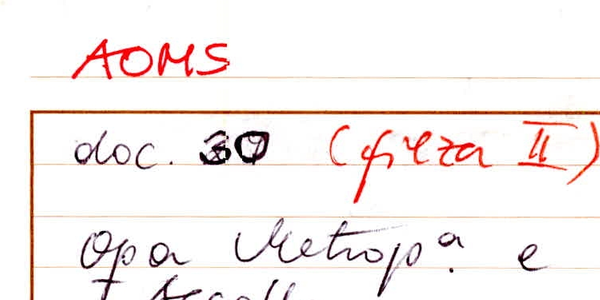 AOMS
doc. 30 (filza II)
Opa Metropª. e